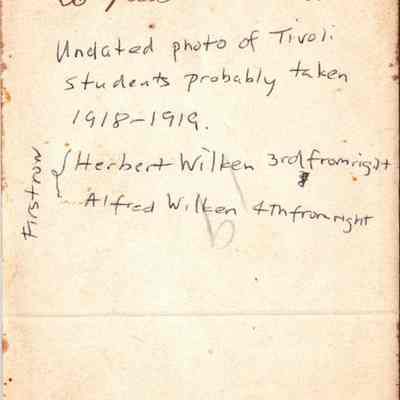 Undated photo of Tivoli
students probably taken
1918-1919.
First row
Herbert Wilken 3rd from right
Alfred Wilken 4th from right